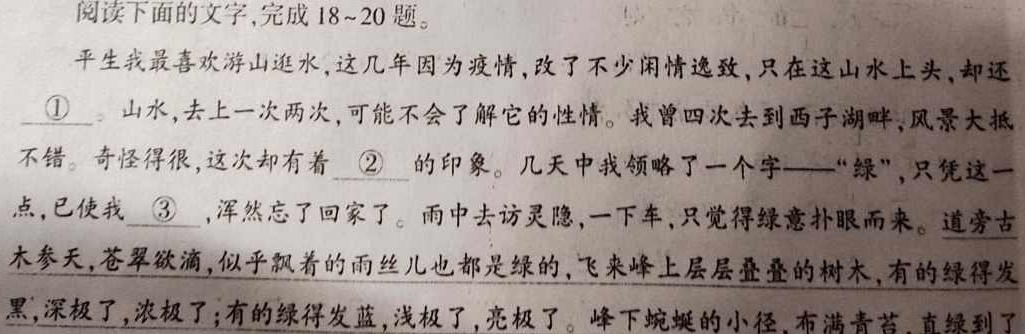 阅读下面的文字,完成18~20题。
平生我最喜欢游山逛水,这几年因为疫情,改了不少闲情逸致,只在这山水上头,却还
①。山水,去上一次两次,可能不会了解它的性情。我曾四次去到西子湖畔,风景大抵
不错。奇怪得很,这次却有着 ② 的印象。几天中我领略了一个字——“绿”,只凭这一
点,已使我 ③ ,浑然忘了回家了。雨中去访灵隐,一下车,只觉得绿意扑眼而来。道旁古
木参天,苍翠欲滴,似乎飘着的雨丝儿也都是绿的,飞来峰上层层叠叠的树木,有的绿得发
黑,深极了,浓极了;有的绿得发蓝,浅极了,亮极了。峰下蜿蜒的小径,布满青苔,直绿到了